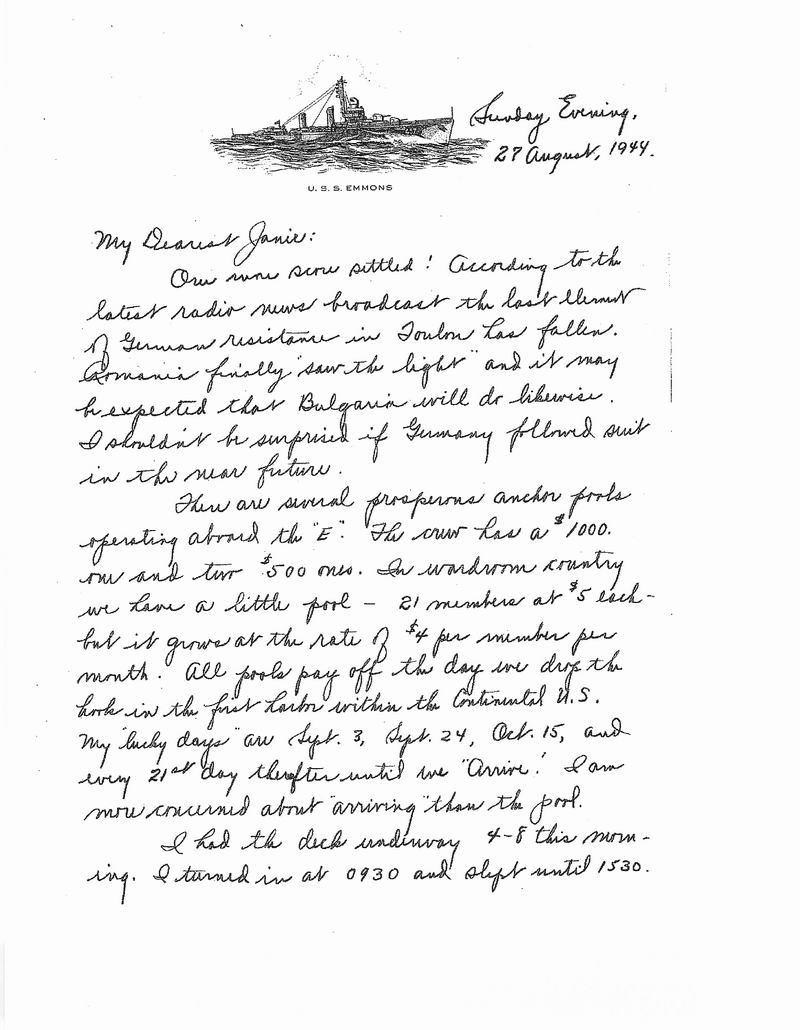 Sunday Evening,
27 August, 1944.
U. S. S. EMMONS
My Dearest Janie:
One more score settled! According to the
latest radio news broadcast the last element
of German resistance in Toulon has fallen.
Romania finally "saw the light" and it may
be expected that Bulgaria will do likewise.
I shouldn't be surprised if Germany followed suit
in the near future.
There are several prosperous anchor pools
operating aboard the "E". The crew has a $1000.
one and two $500 ones. In wardroom country
we have a little pool – 21 members at $5 each –
but it grows at the rate of $4 per member per
month. All pools pay off the day we drop the
hook in the first harbor within the Continental U.S.
My "lucky days" are Sept. 3, Sept. 24, Oct. 15, and
every 21st day therafter until we "Arrive". I am
more concerned about "arriving" than the pool.
I had the deck underway 4-8 this morn-
ing. I turned in at 0930 and slept until 1530.